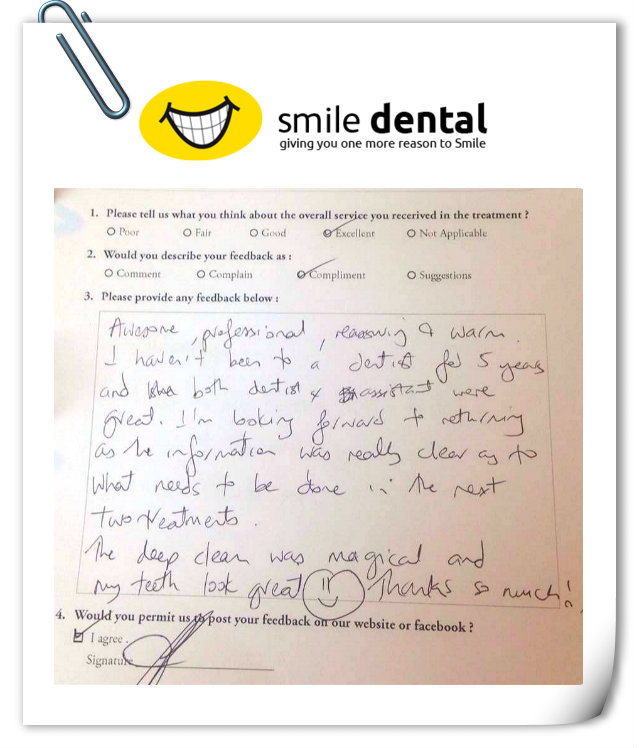 smile dental
giving you one more reason to Smile
1. Please tell us what you think about the overall service you recerived in the treatment ?
Poor Fair Good Excellent Not Applicable
2. Would you describe your feedback as :
Comment Complain Compliment Suggestions
3. Please provide any feedback below :
Awesome, professional, reassuring & warm.
I haven't been to a dentist for 5 years
and both dentist & assistant were
great. I'm looking forward to returning
as the information was really clear as to
what needs to be done in the next
two treatments.
The deep clean was magical and
my teeth look great Thanks so much!
4. Would you permit us to post your feedback on our website or facebook ?
I agree.
Signature